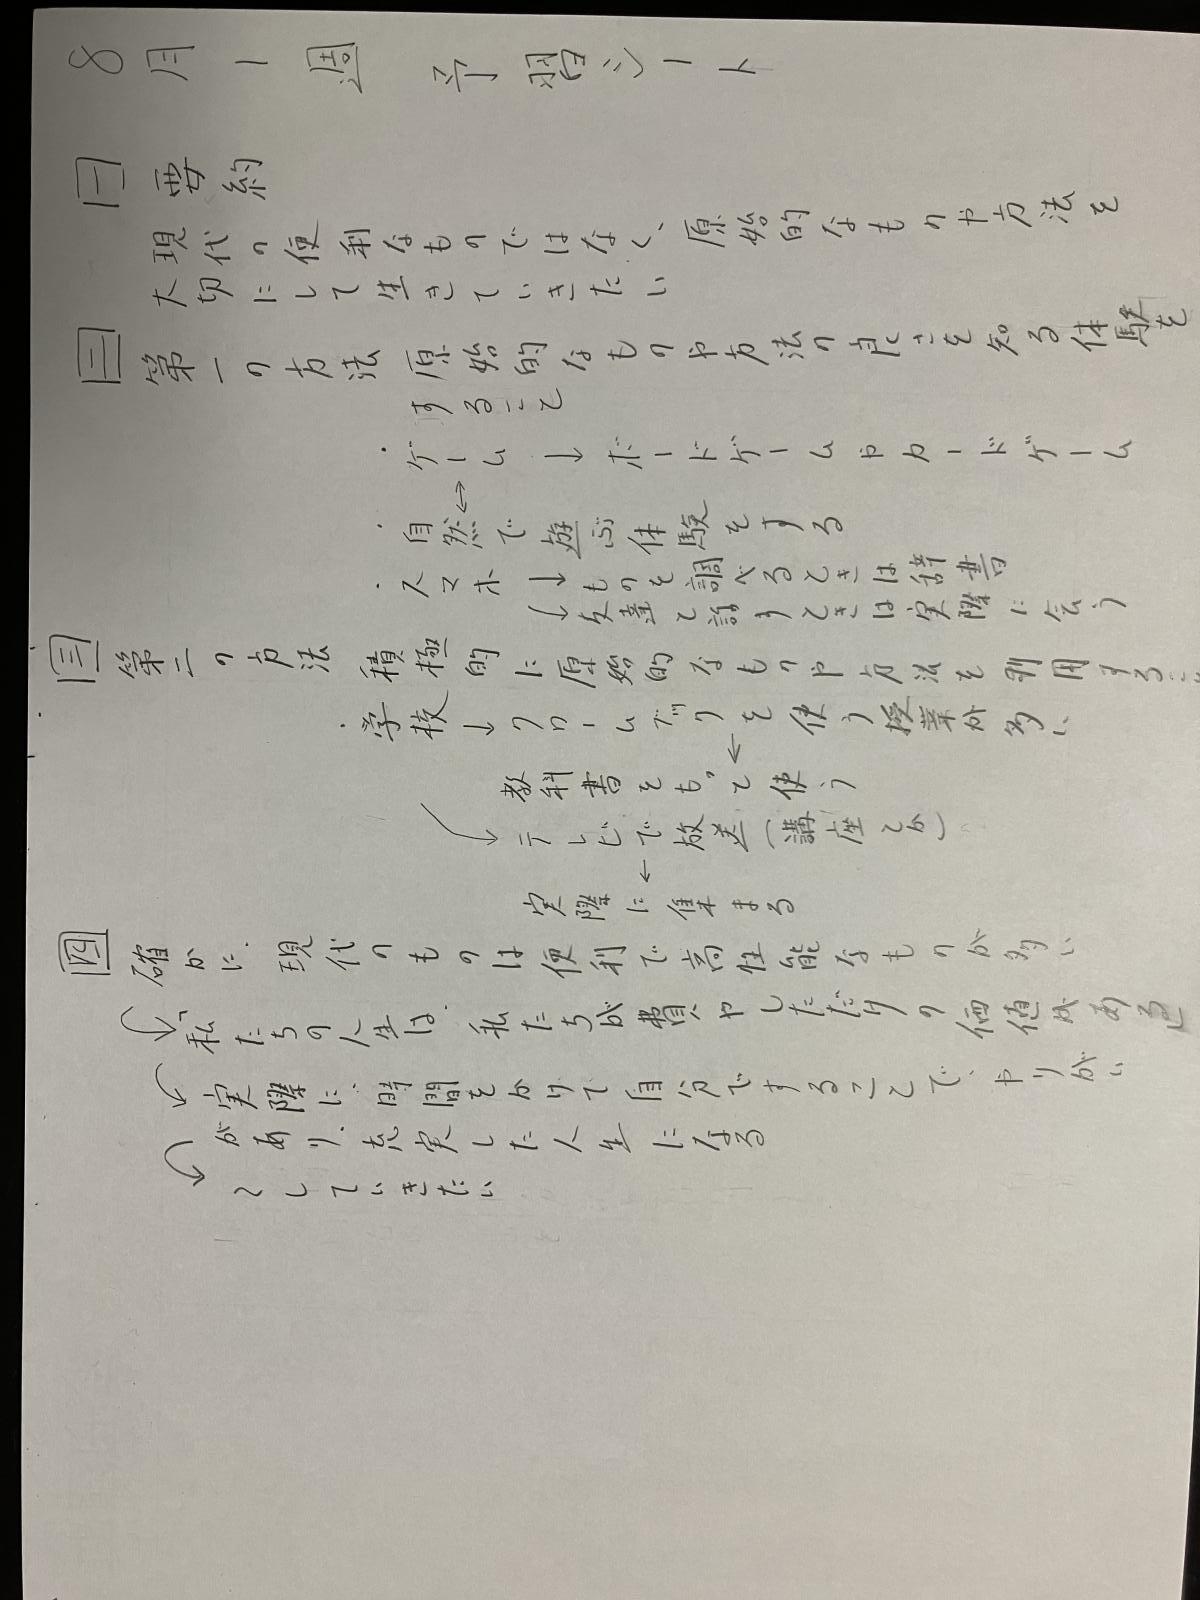 8月1週 予習シート
一 要約
現代の便利なものではなく、原始的なものや方法を
大切にして生きていきたい
二 第一の方法 原始的なものや方法の良さを知る体験を
すること
・ゲーム → ボードゲームやカードゲーム
↔
・自然で遊ぶ体験をする
・スマホ → ものを調べるときは辞書
→ 友達と話すときは実際に会う
三 第二の方法 積極的に原始的なものや方法を利用すること
・学校 → クロームブックを使う授業が多い
←
教科書をもって使う
→ テレビで放送(講座とか)
←
実際に集まる
四 確かに、現代のものは便利で高性能なものが多い
「私たちの人生は、私たちが費やしただけの価値がある」
実際に、時間をかけて自分ですることで、やりがい
があり、充実した人生になる
〜していきたい